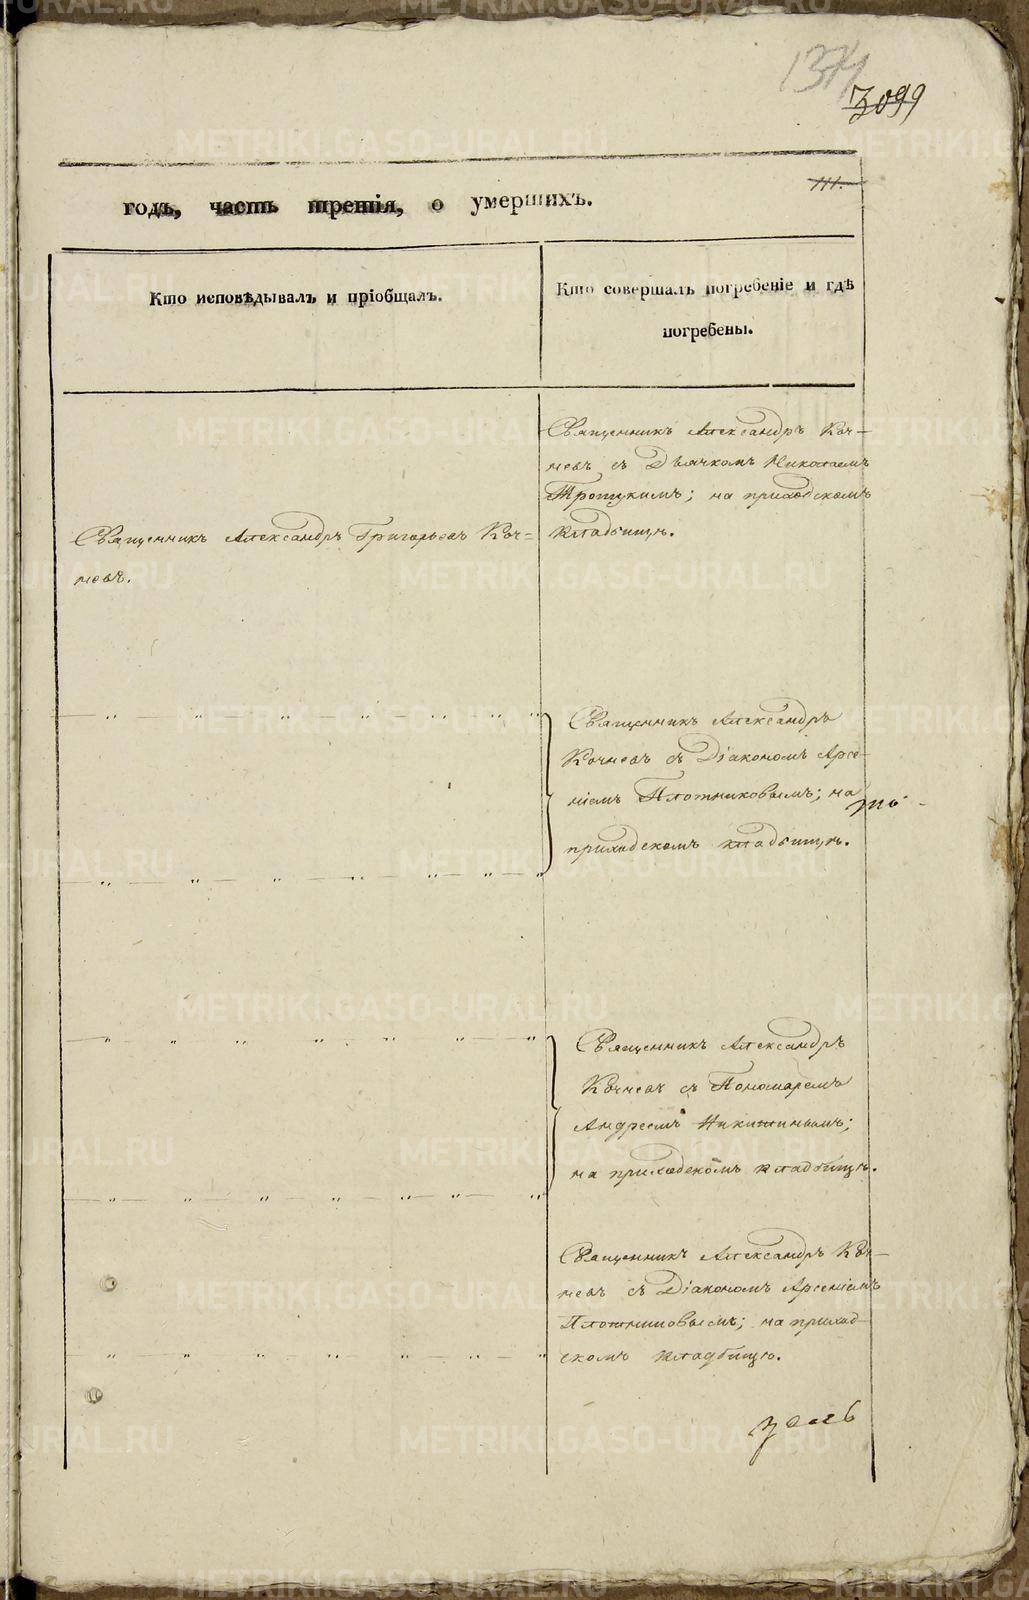 1374
3099
111.
годъ, часть третія, о умершихъ.
Кто исповѣдывалъ и пріобщалъ.
Кто совершалъ погребеніе и гдѣ
погребены.
Священникъ Александръ Коч-
невъ съ Дьячкомъ Николаемъ
Троицкимъ; на приходскомъ
кладбищѣ.
Священникъ Александръ Григорьевъ Коч=
невъ.
Священникъ Александръ
Кочневъ съ Діакономъ Арсе-
ніемъ Плотниковымъ; на
приходскомъ кладбищѣ.
Священникъ Александръ
Кочневъ съ Пономаремъ
Андреемъ Никитинымъ;
на приходскомъ кладбищѣ.
Священникъ Александръ Коч-
невъ съ Діакономъ Арсеніемъ
Плотниковымъ; на приход-
скомъ кладбищѣ.
METRIKI.GASO-URAL.RU